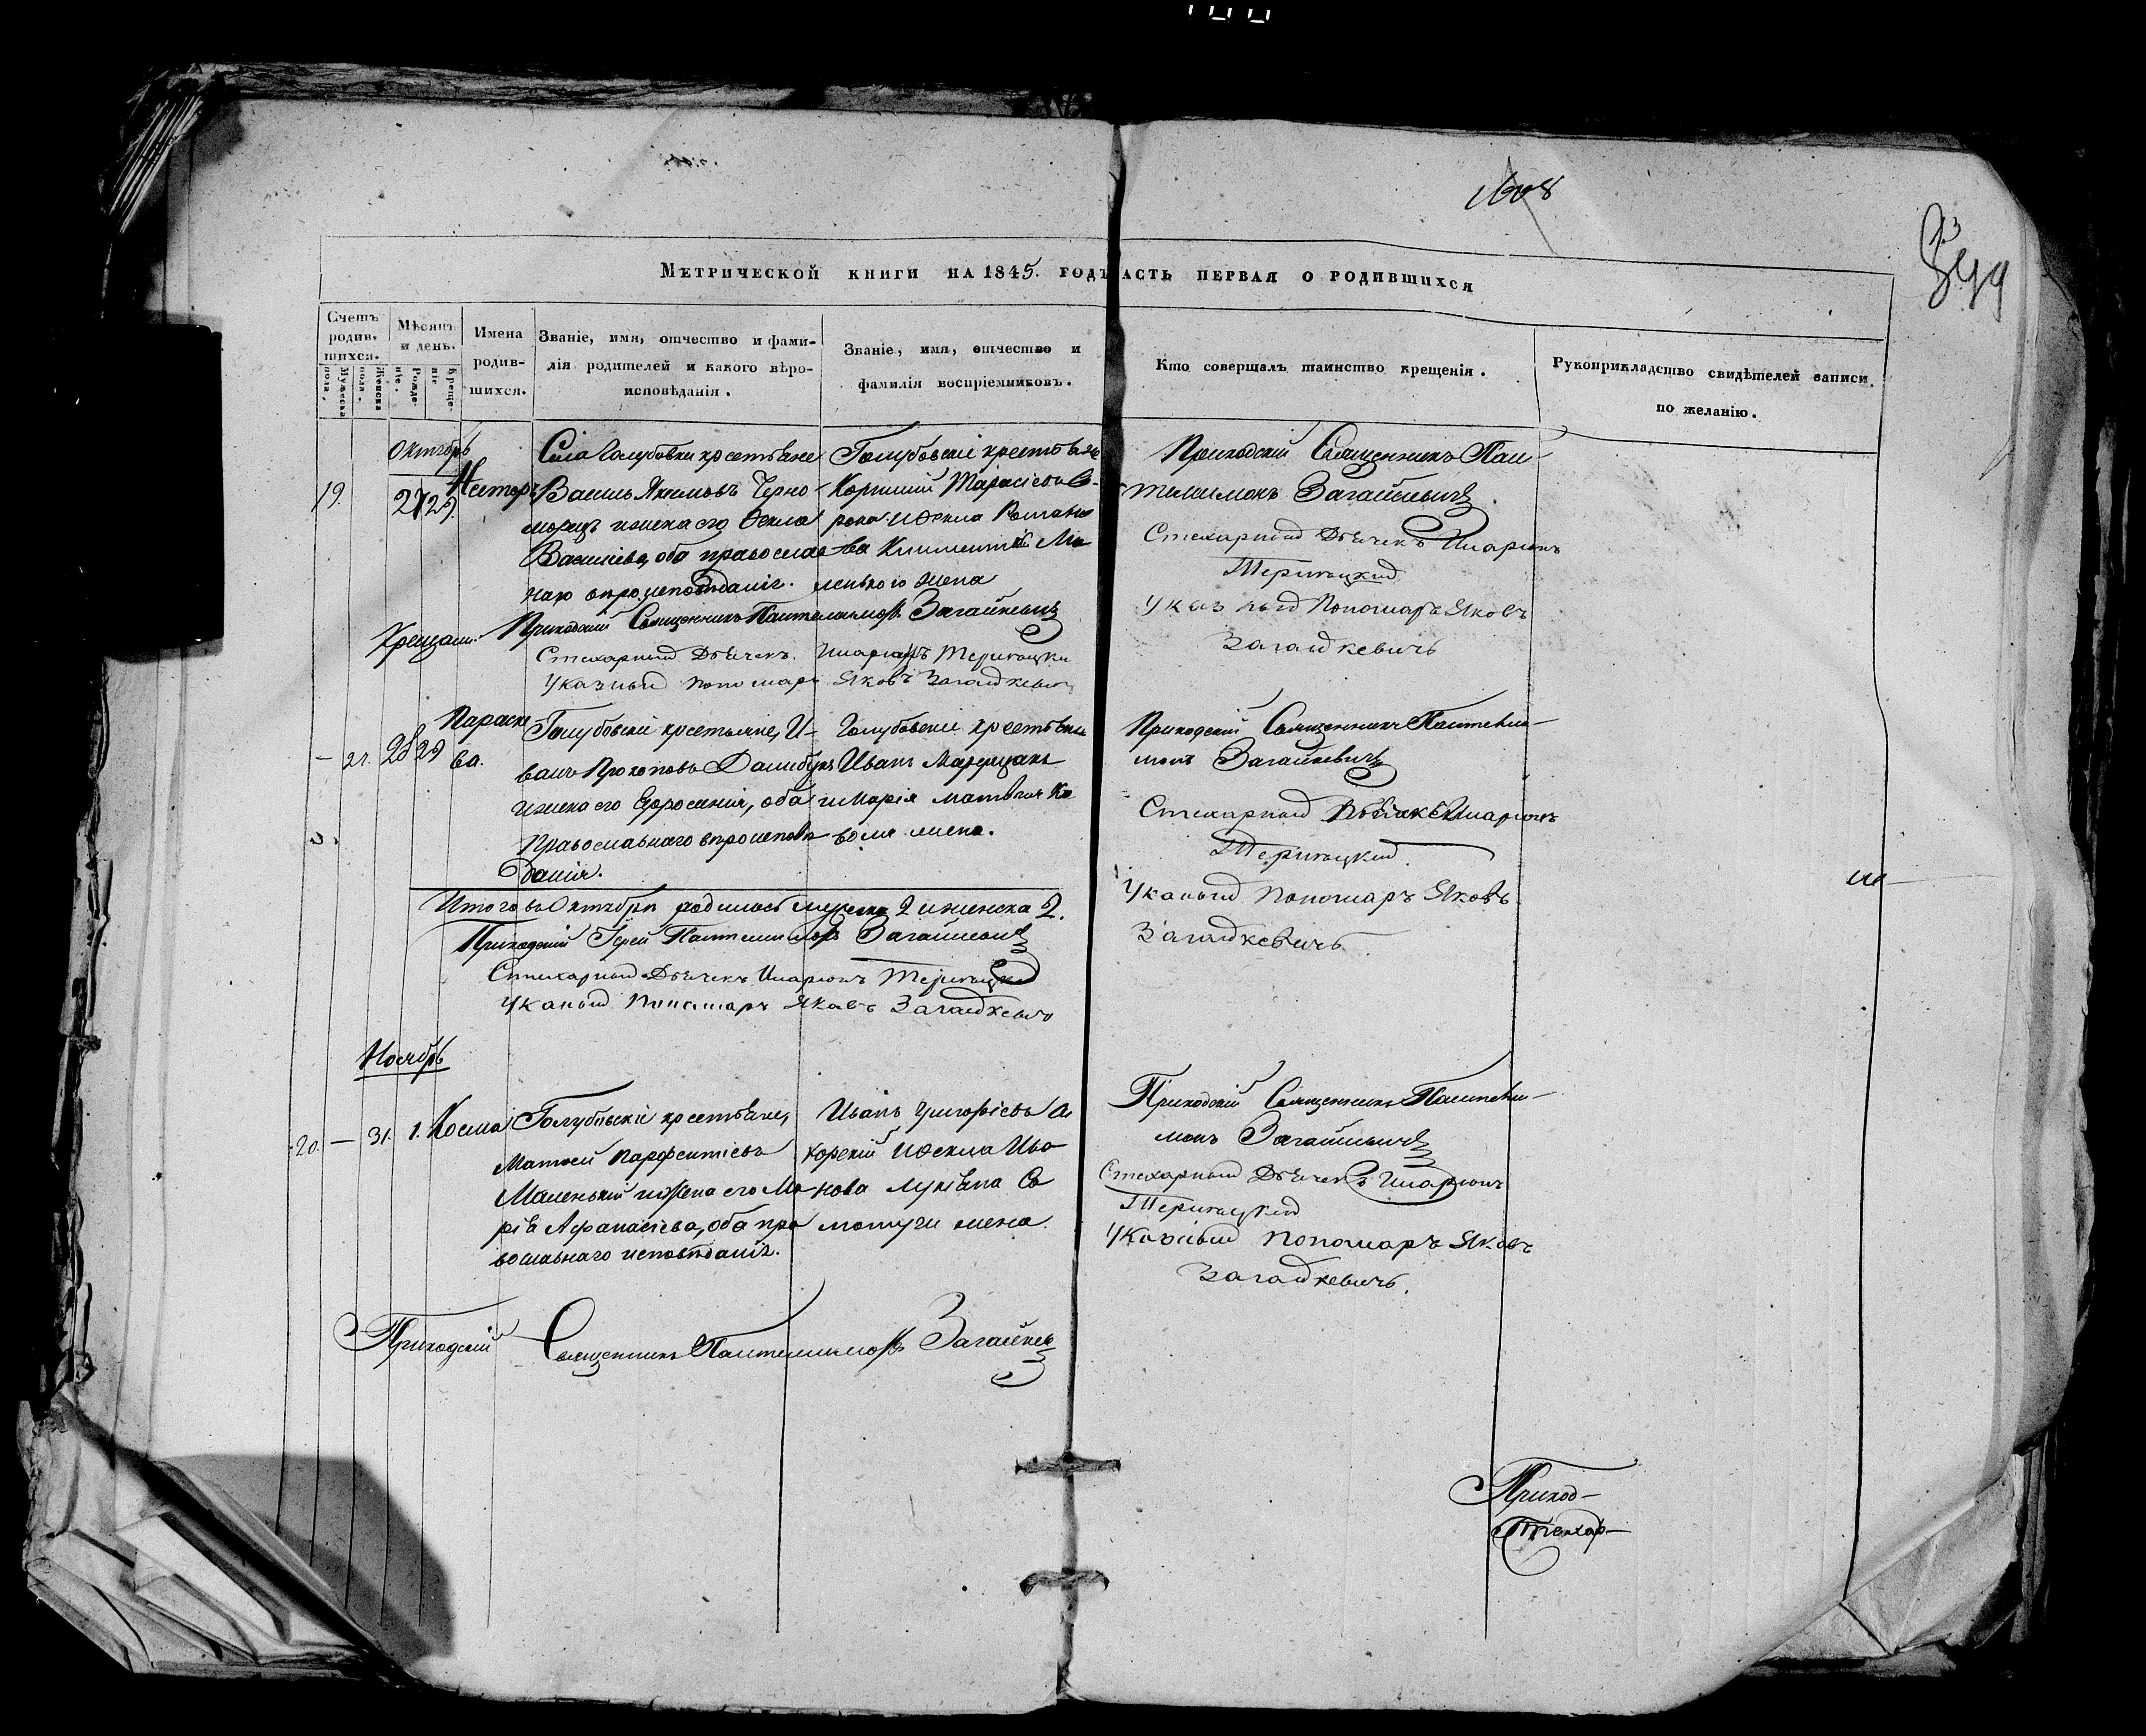 1808
МЕТРИЧЕСКОЙ КНИГИ НА 1845. ГОДЪ ЧАСТЬ ПЕРВАЯ О РОДИВШИХСЯ
Счетъ родив-шихся.
Мужеска пола.
Женска пола.
Мѣсяцъ и день.
Рожде-ніе.
Креще-ніе
Имена родив-шихся.
Званіе, имя, отчество и фами-
лія родителей и какого вѣро-
исповѣданія.
Званіе, имя, отчество и
фамилія воспріемниковъ.
Кто совершалъ таинство крещенія.
Рукоприкладство свидѣтелей записи
по желанію.
Октябрь
19. 27 29. Несторъ
Села Голубовки крестьяне
Василь Якимовъ Черно-
морецъ и жена его Ѳекла
Василіева, оба православ-
наго вѣроисповѣданія.
Голубовскіе крестьяне
Корнилій Тарасіевъ
и Ѳекла Романо-
ва Климентія Ма-
ленького жена
Приходскій Священникъ Пан-
телимонъ Загайкевичъ
Стихарный Дьячекъ Иларіонъ
Терновацкій
Указный Пономарь Яковъ
Загайкевичъ
Крещали: Приходскій Священникъ Пантелимонъ Загайкевичъ
Стихарный Дьячекъ Иларіонъ
Указный Пономарь Яковъ Загайкевичъ
— 21. 28 29 Параске-
ва.
Голубовскіе крестьяне, И-
ванъ Прокоповъ
и жена его Ефросинія, оба
Православнаго вѣроисповѣ-
данія.
Голубовскіе крестьяне
Иванъ
и Марія Матвѣя Ко-
валя жена.
Приходскій Священникъ Пантели-
монъ Загайкевичъ
Стихарный Дьячекъ Иларіонъ
Указный Пономарь Яковъ
Загайкевичъ
Итого въ Октябрѣ родилось мужеска 2 и женска 2.
Приходскій Іерей Пантелимонъ Загайкевичъ
Стихарный Дьячекъ Иларіонъ
Указный Пономарь Яковъ Загайкевичъ
Ноябрь
20. — 31. 1. Косма
Голубовскіе крестьяне,
Матвей Парфентіевъ
Маленькій и жена его Ма-
рія Афанасіева, оба пра-
вославнаго исповѣданія.
Иванъ Григоріевъ
и Ѳекла Ива-
нова Лукіяна
жена.
Приходскій Священникъ Пантели-
монъ Загайкевичъ
Стихарный Дьячекъ Иларіонъ
Указный Пономарь Яковъ
Загайкевичъ.
Приходскій Священникъ Пантелимонъ Загайкевичъ
Приход-
Стихар-